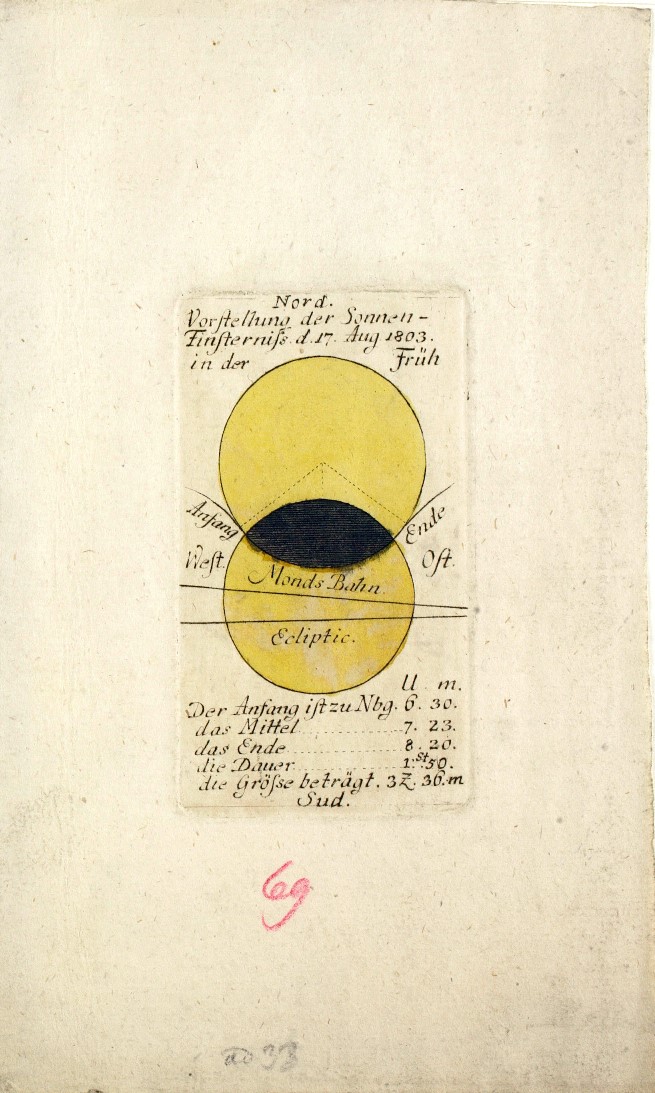 Nord.
Vorſtellung der Sonnen-
Finſterniſs. d. 17. Aug 1803.
in der Früh
Anfang Ende
Weſt. Oſt.
Monds Bahn.
Ecliptic.
U. m.
Der Anfang iſt zu Nbg. 6. 30.
das Mittel 7. 23.
das Ende 8. 20.
die Dauer 1.St 50.
die Gröſse beträgt. 3Z. 36.m
Sud.
69
33